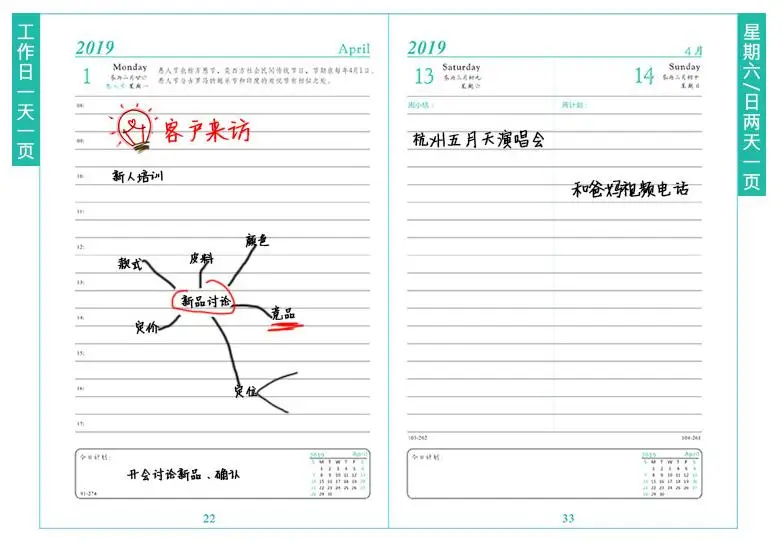 工作日一天一页
2019 April
1 Monday
农历二月廿六
愚人节 星期一
愚人节也称万愚节,是西方社会民间传统节日,节期在每年4月1日。
08:
客户来访
09:
新人培训
10:
11:
12:
颜色
皮料
款式
13:
新品讨论
竞品
14:
定价
15:
16:
定位
17:
今日计划:
开会讨论新品、确认
2019 April
S M T W T F S
1 2 3 4 5 6
7 8 9 10 11 12 13
14 15 16 17 18 19 20
21 22 23 24 25 26 27
28 29 30
91-274
22
星期六/日两天一页
2019 4月
13 Saturday
农历三月初九
星期六
14 Sunday
农历三月初十
星期日
周小结:
周计划:
杭州五月天演唱会
和爸妈视频电话
103-262
104-261
今日计划:
2019 April
S M T W T F S
1 2 3 4 5 6
7 8 9 10 11 12 13
14 15 16 17 18 19 20
21 22 23 24 25 26 27
28 29 30
33